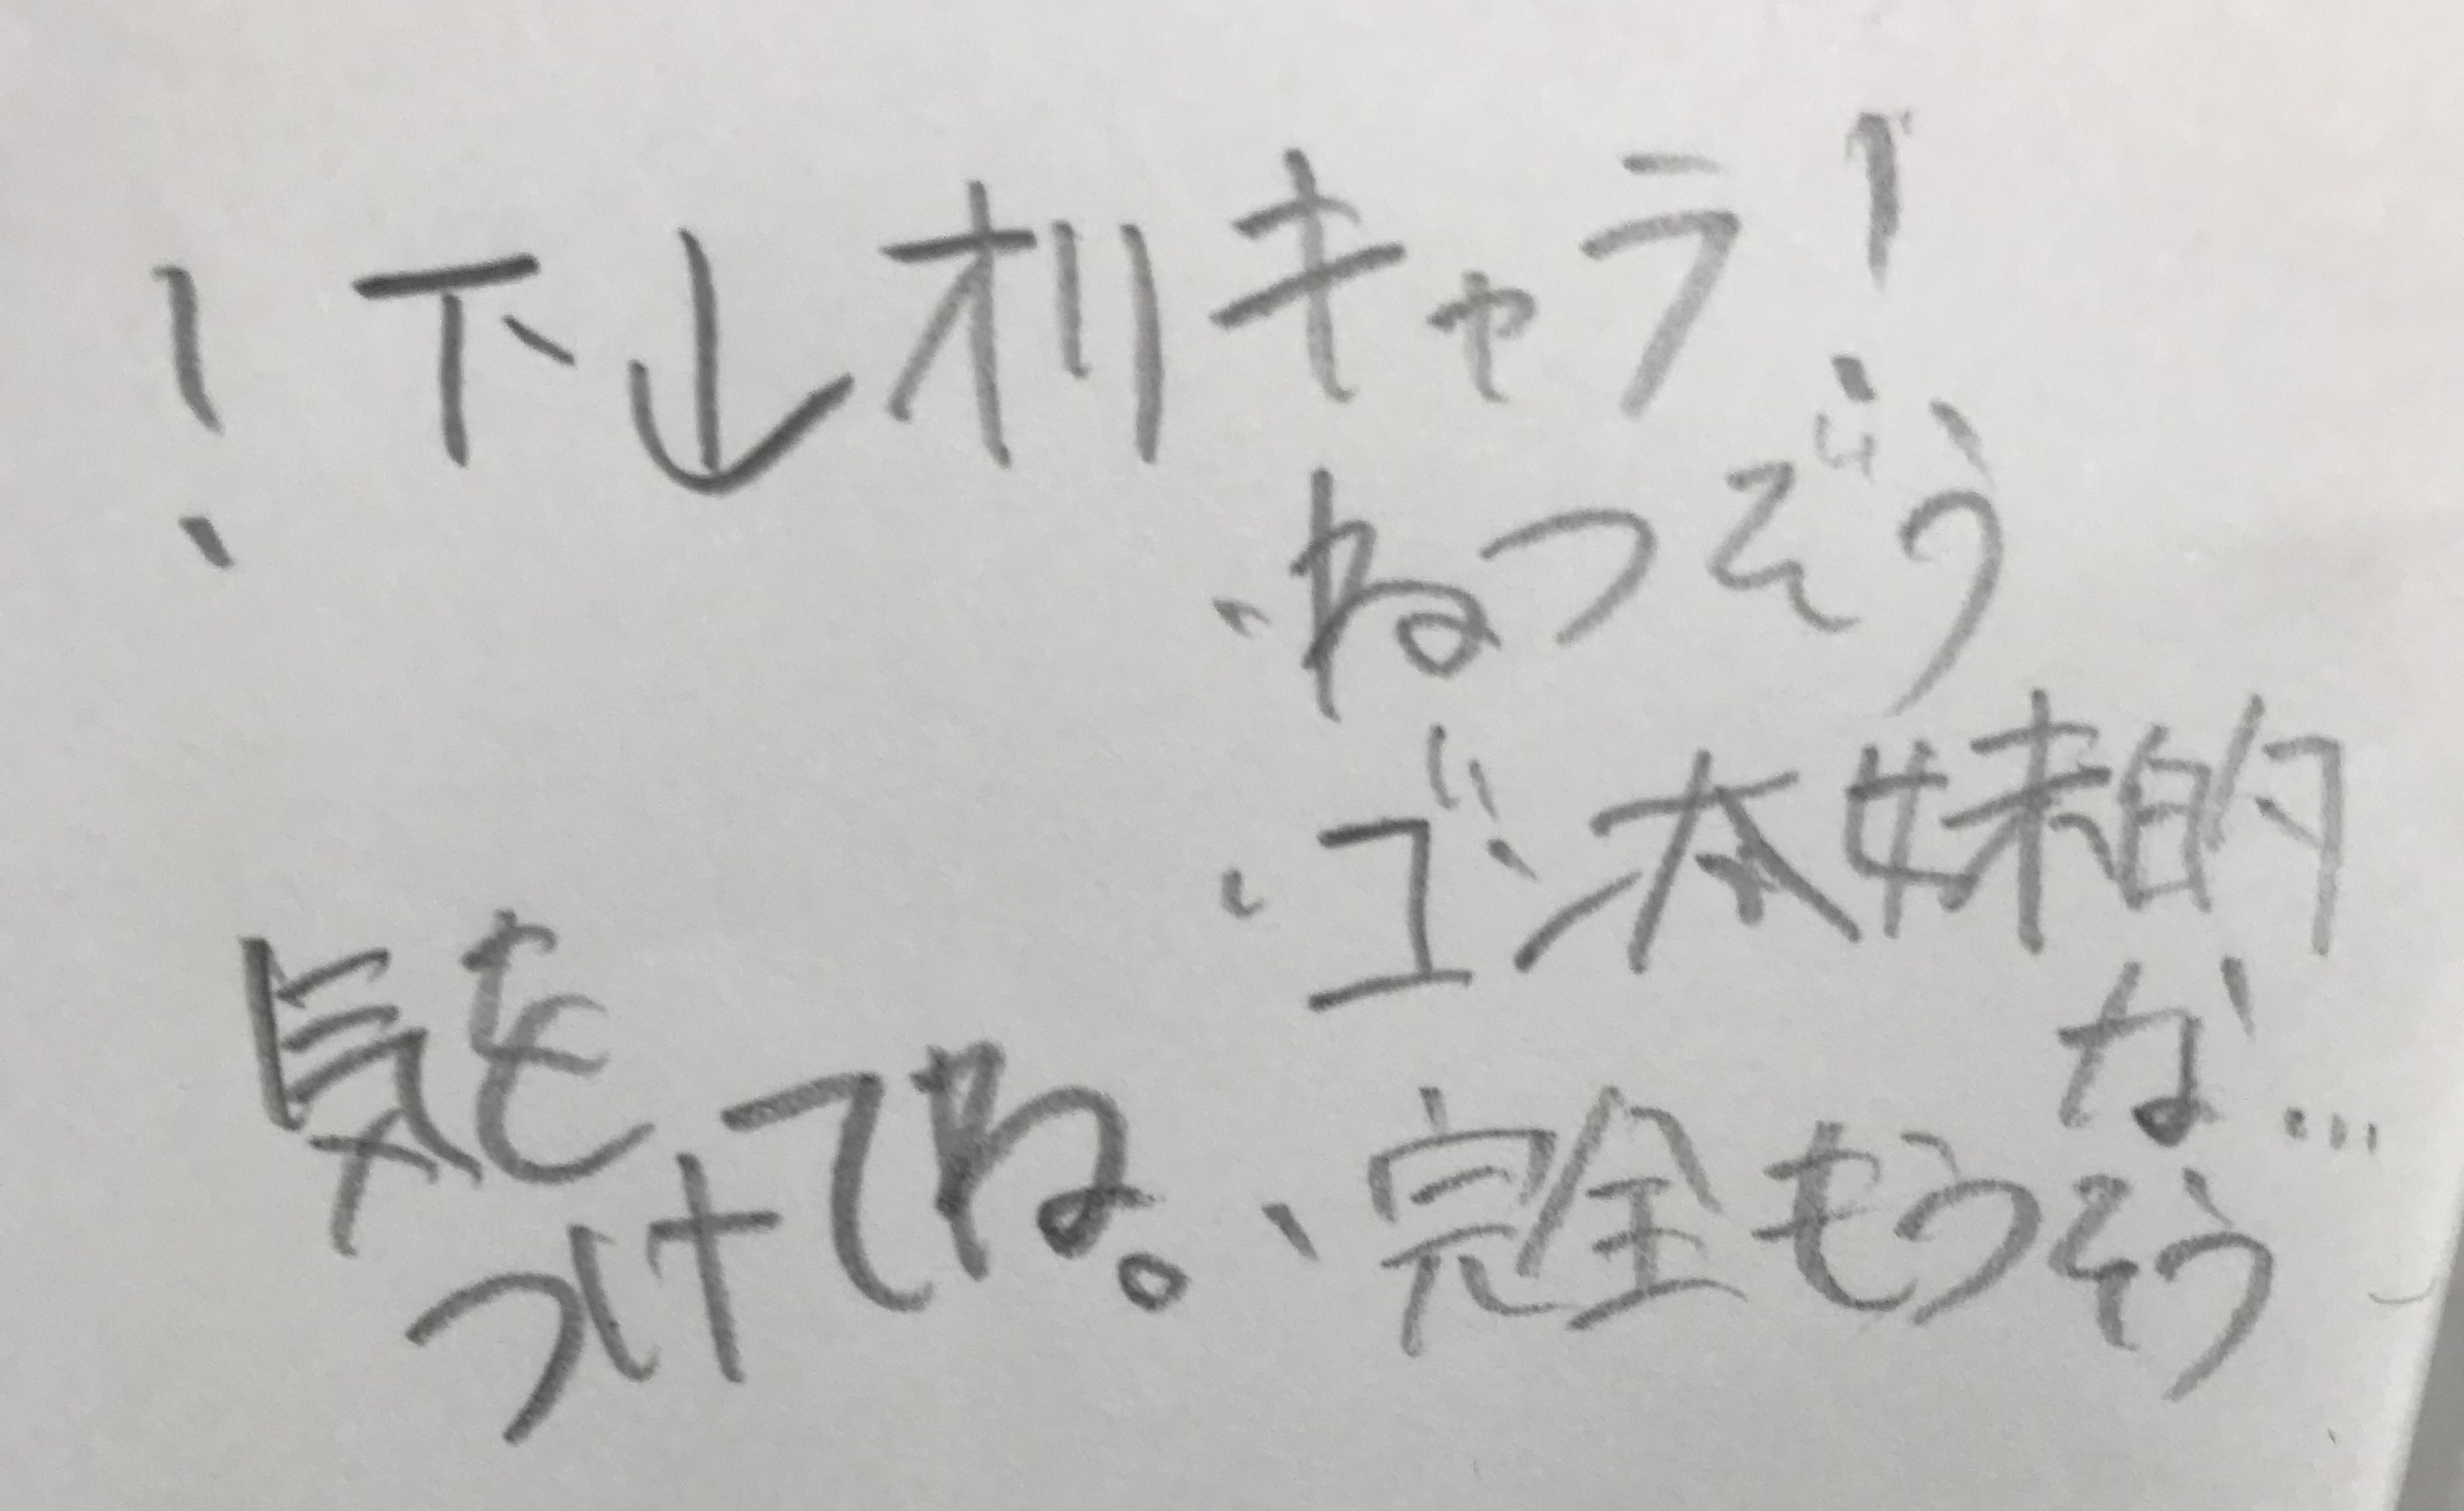 ！下↓オリキャラ！
・ねつぞう
・ゴン太妹的
な…
・完全もうそう
気を
つけてね。